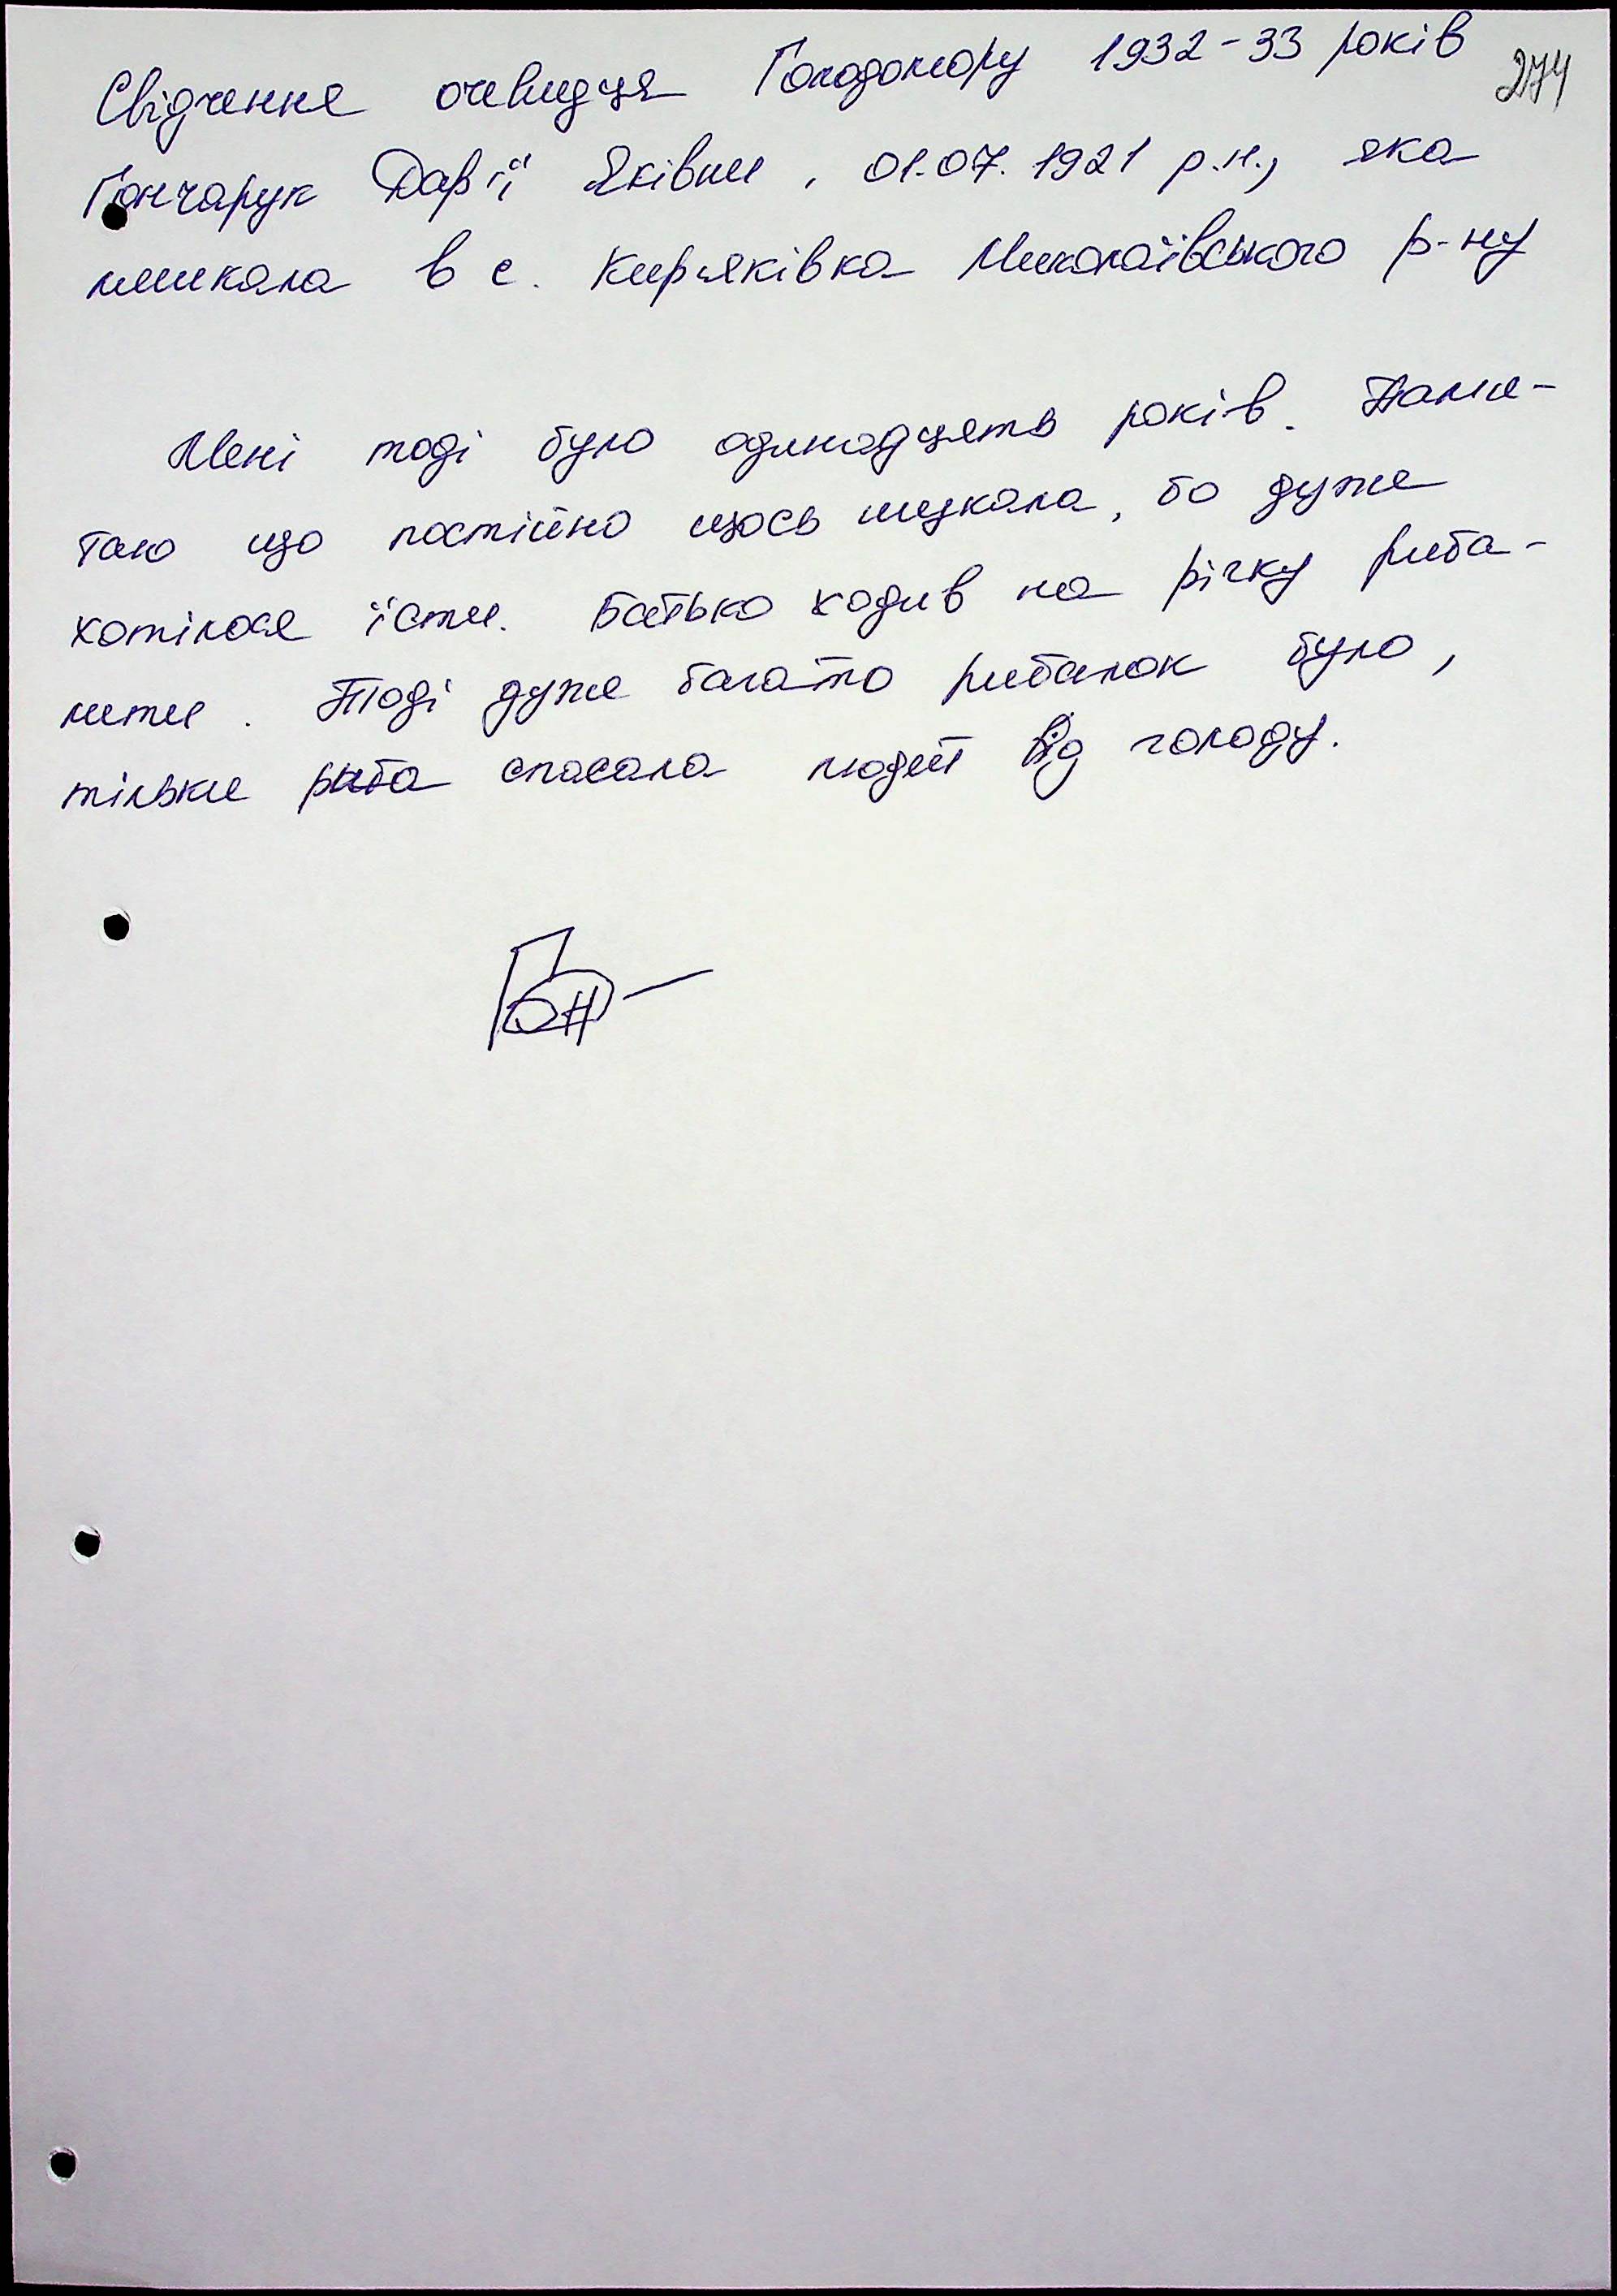 Свідчення очевидця Голодомору 1932-33 років
274
Гончарук Дар'ї Яківни, 01.07.1921 р.н., яка
мешкала в с. Кир'яківка Миколаївського р-ну
Мені тоді було одинадцять років. Пам'я-
таю що постійно щось шукала, бо дуже
хотілося їсти. Батько ходив на річку риба-
лити. Тоді дуже багато рибалок було,
тільки риба спасала людей від голоду.